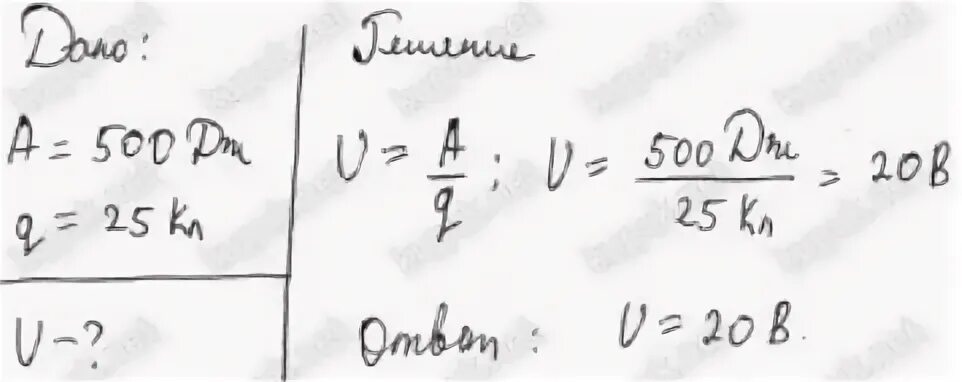 Дано:
A = 500 Дж
q = 25 Кл
U - ?
Решение
U = A/q ; U = 500 Дж / 25 Кл = 20 В
Ответ : U = 20 В.